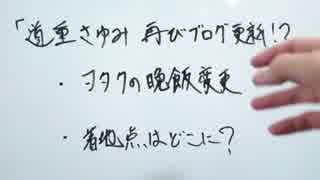 「道重さゆみ 再びブログ更新!?
・ヲタクの晩飯変更
・着地点はどこに?